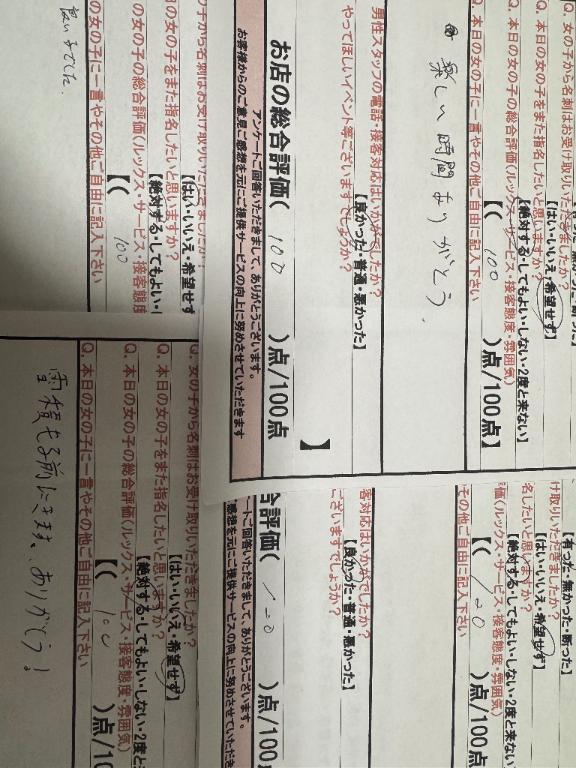 Q. 女の子から名刺はお受け取りいただきましたか?
【はい・いいえ・希望せず】
Q. 本日の女の子をまた指名したいと思いますか?
【絶対する・してもよい・しない・2度と来ない】
Q. 本日の女の子の総合評価(ルックス・サービス・接客態度・雰囲気)
【( 100 )点/100点】
Q. 本日の女の子に一言やその他ご自由に記入下さい
楽しい時間ありがとう
男性スタッフの電話・接客対応はいかがでしたか?
【良かった・普通・悪かった】
やってほしいイベント等ございますでしょうか?
】
お店の総合評価( 100 )点/100点
アンケートご回答いただきまして、ありがとうございます。
お客様からのご意見ご感想を元にご提供サービスの向上に努めさせていただきます
の子から名刺はお受け取りいただきましたか?
【はい・いいえ・希望せず
の女の子をまた指名したいと思いますか?
【絶対する・してもよい・し
の女の子の総合評価(ルックス・サービス・接客態度
【( 100
の女の子に一言やその他ご自由に記入下さい
良い子でした
【有った・無かった・断った】
け取りいただきましたか?
【はい・いいえ・希望せず】
名したいと思いますか?
【絶対する・してもよい・しない・2度と来ない
価(ルックス・サービス・接客態度・雰囲気)
【( 100 )点/100点
その他ご自由に記入下さい
客対応はいかがでしたか?
【良かった・普通・悪かった】
ございますでしょうか?
合評価( 100 )点/100点
ートご回答いただきまして、ありがとうございます。
感想を元にご提供サービスの向上に努めさせていただき
Q. 女の子から名刺はお受け取りいただきましたか?
【はい・いいえ・希望せず】
Q. 本日の女の子をまた指名したいと思いますか?
【絶対する・してもよい・しない・2度と来
Q. 本日の女の子の総合評価(ルックス・サービス・接客態度・雰囲気)
【( 100 )点/10
Q. 本日の女の子に一言やその他ご自由に記入下さい
雪積もる前にきます、ありがとう!